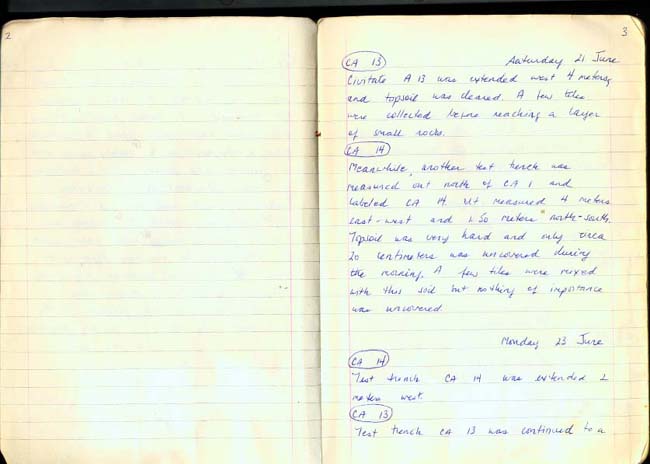 2
3
CA 13 Saturday 21 June
Civitate A 13 was extended west 4 meters,
and topsoil was cleared. A few tiles
were collected before reaching a layer
of small rocks.
CA 14
Meanwhile, another test trench was
measured out north of CA 1 and
labeled CA 14. It measured 4 meters
east-west and 1.50 meters north-south.
Topsoil was very hard and only circa
20 centimeters was uncovered during
the morning. A few tiles were mixed
with this soil but nothing of importance
was uncovered.
Monday 23 June
CA 14
Test trench CA 14 was extended 2
meters west.
CA 13
Test trench CA 13 was continued to a